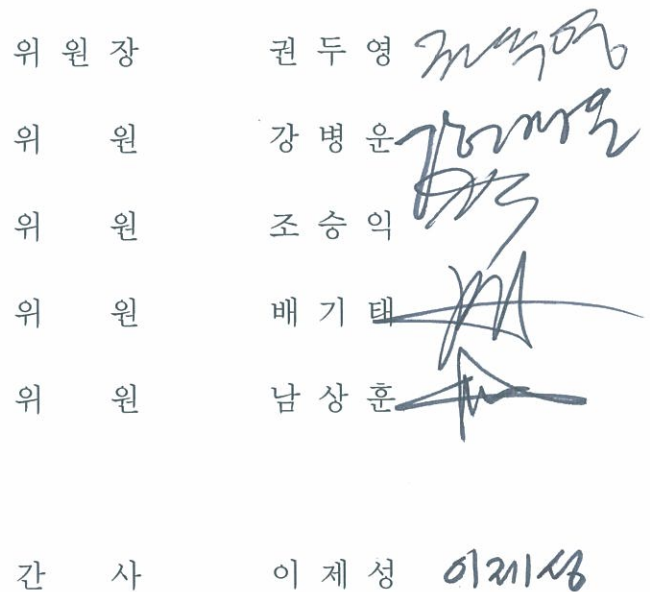 위 원 장 권 두 영 권두영
위 원 강 병 운 강병운
위 원 조 승 익
위 원 배 기 태
위 원 남 상 훈
간 사 이 제 성 이제성